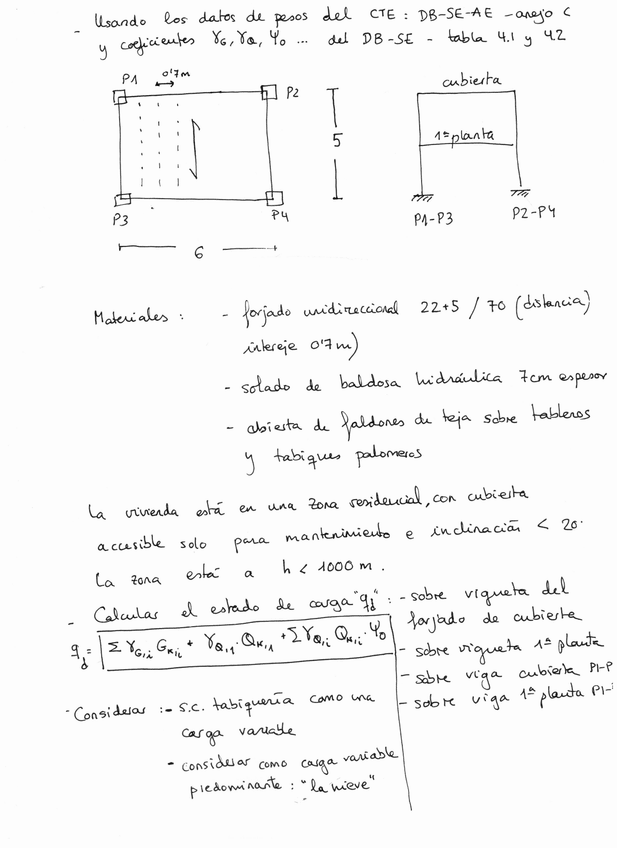 - Usando los datos de pesos del CTE : DB-SE-AE - anejo C
y coeficientes γG, γQ, Ψ0 ... del DB-SE - tabla 4.1 y 4.2
P1
0'7m
P2
P3
P4
6
5
cubierta
1ª planta
P1-P3
P2-P4
Materiales : - forjado unidireccional 22+5 / 70 (distancia
intereje 0'7m)
- solado de baldosa hidráulica 7cm espesor
- cbierta de faldones de teja sobre tableros
y tabiques palomeros
La vivienda está en una zona residencial, con cubierta
accesible solo para mantenimiento e inclinación < 20.
La zona está a h < 1000 m.
- Calcular el estado de carga "qd" : - sobre vigueta del
forjado de cubierta
qd = Σ γG,i GK,i + γQ,1 · QK,1 + Σ γQ,i QK,i · Ψ0
- sobre vigueta 1ª planta
- sobre viga cubierta P1-P
- sobre viga 1ª planta P1-
- Considerar : - s.c. tabiquería como una
carga variable
- considerar como carga variable
predominante : "la nieve"